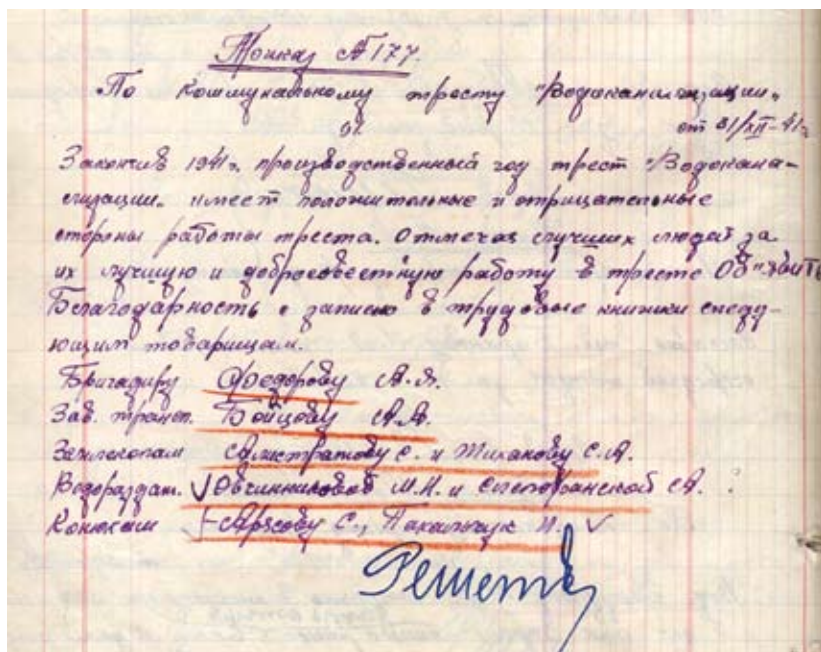 Приказ № 177.
По коммунальному тресту "Водоканализации"
от 31/XII-41г.
Закончив 1941г. производственный год трест "Водокана-
лизации" имеет положительные и отрицательные
стороны работы треста. Отмечая лучших людей за
их лучшую и добросовестную работу в тресте Об"явить
Благодарность с записью в трудовые книжки следу-
ющим товарищам.
Бригадиру Федорову А.Я.
Зав. трансп. Бойцову А.А.
Землекопам С. и С.А.
Водораздат. Овчинниковой М.И. и А.
Конюхам С., Пахальчук И.